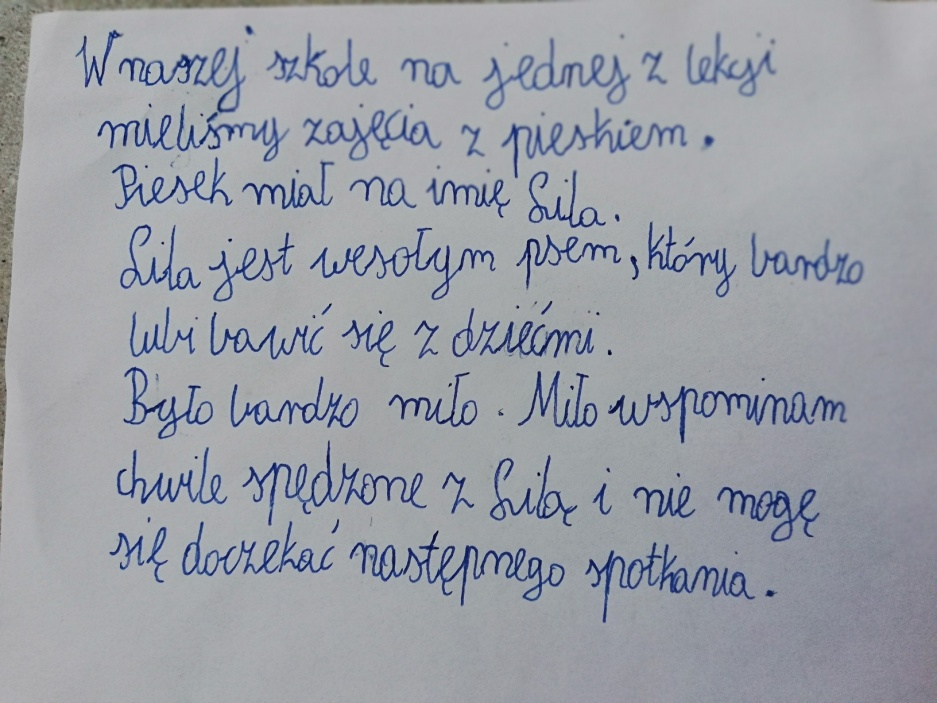 W naszej szkole na jednej z lekcji
mieliśmy zajęcia z pieskiem.
Piesek miał na imię Lila.
Lila jest wesołym psem, który bardzo
lubi bawić się z dziećmi.
Było bardzo miło. Miło wspominam
chwile spędzone z Lilą i nie mogę
się doczekać następnego spotkania.